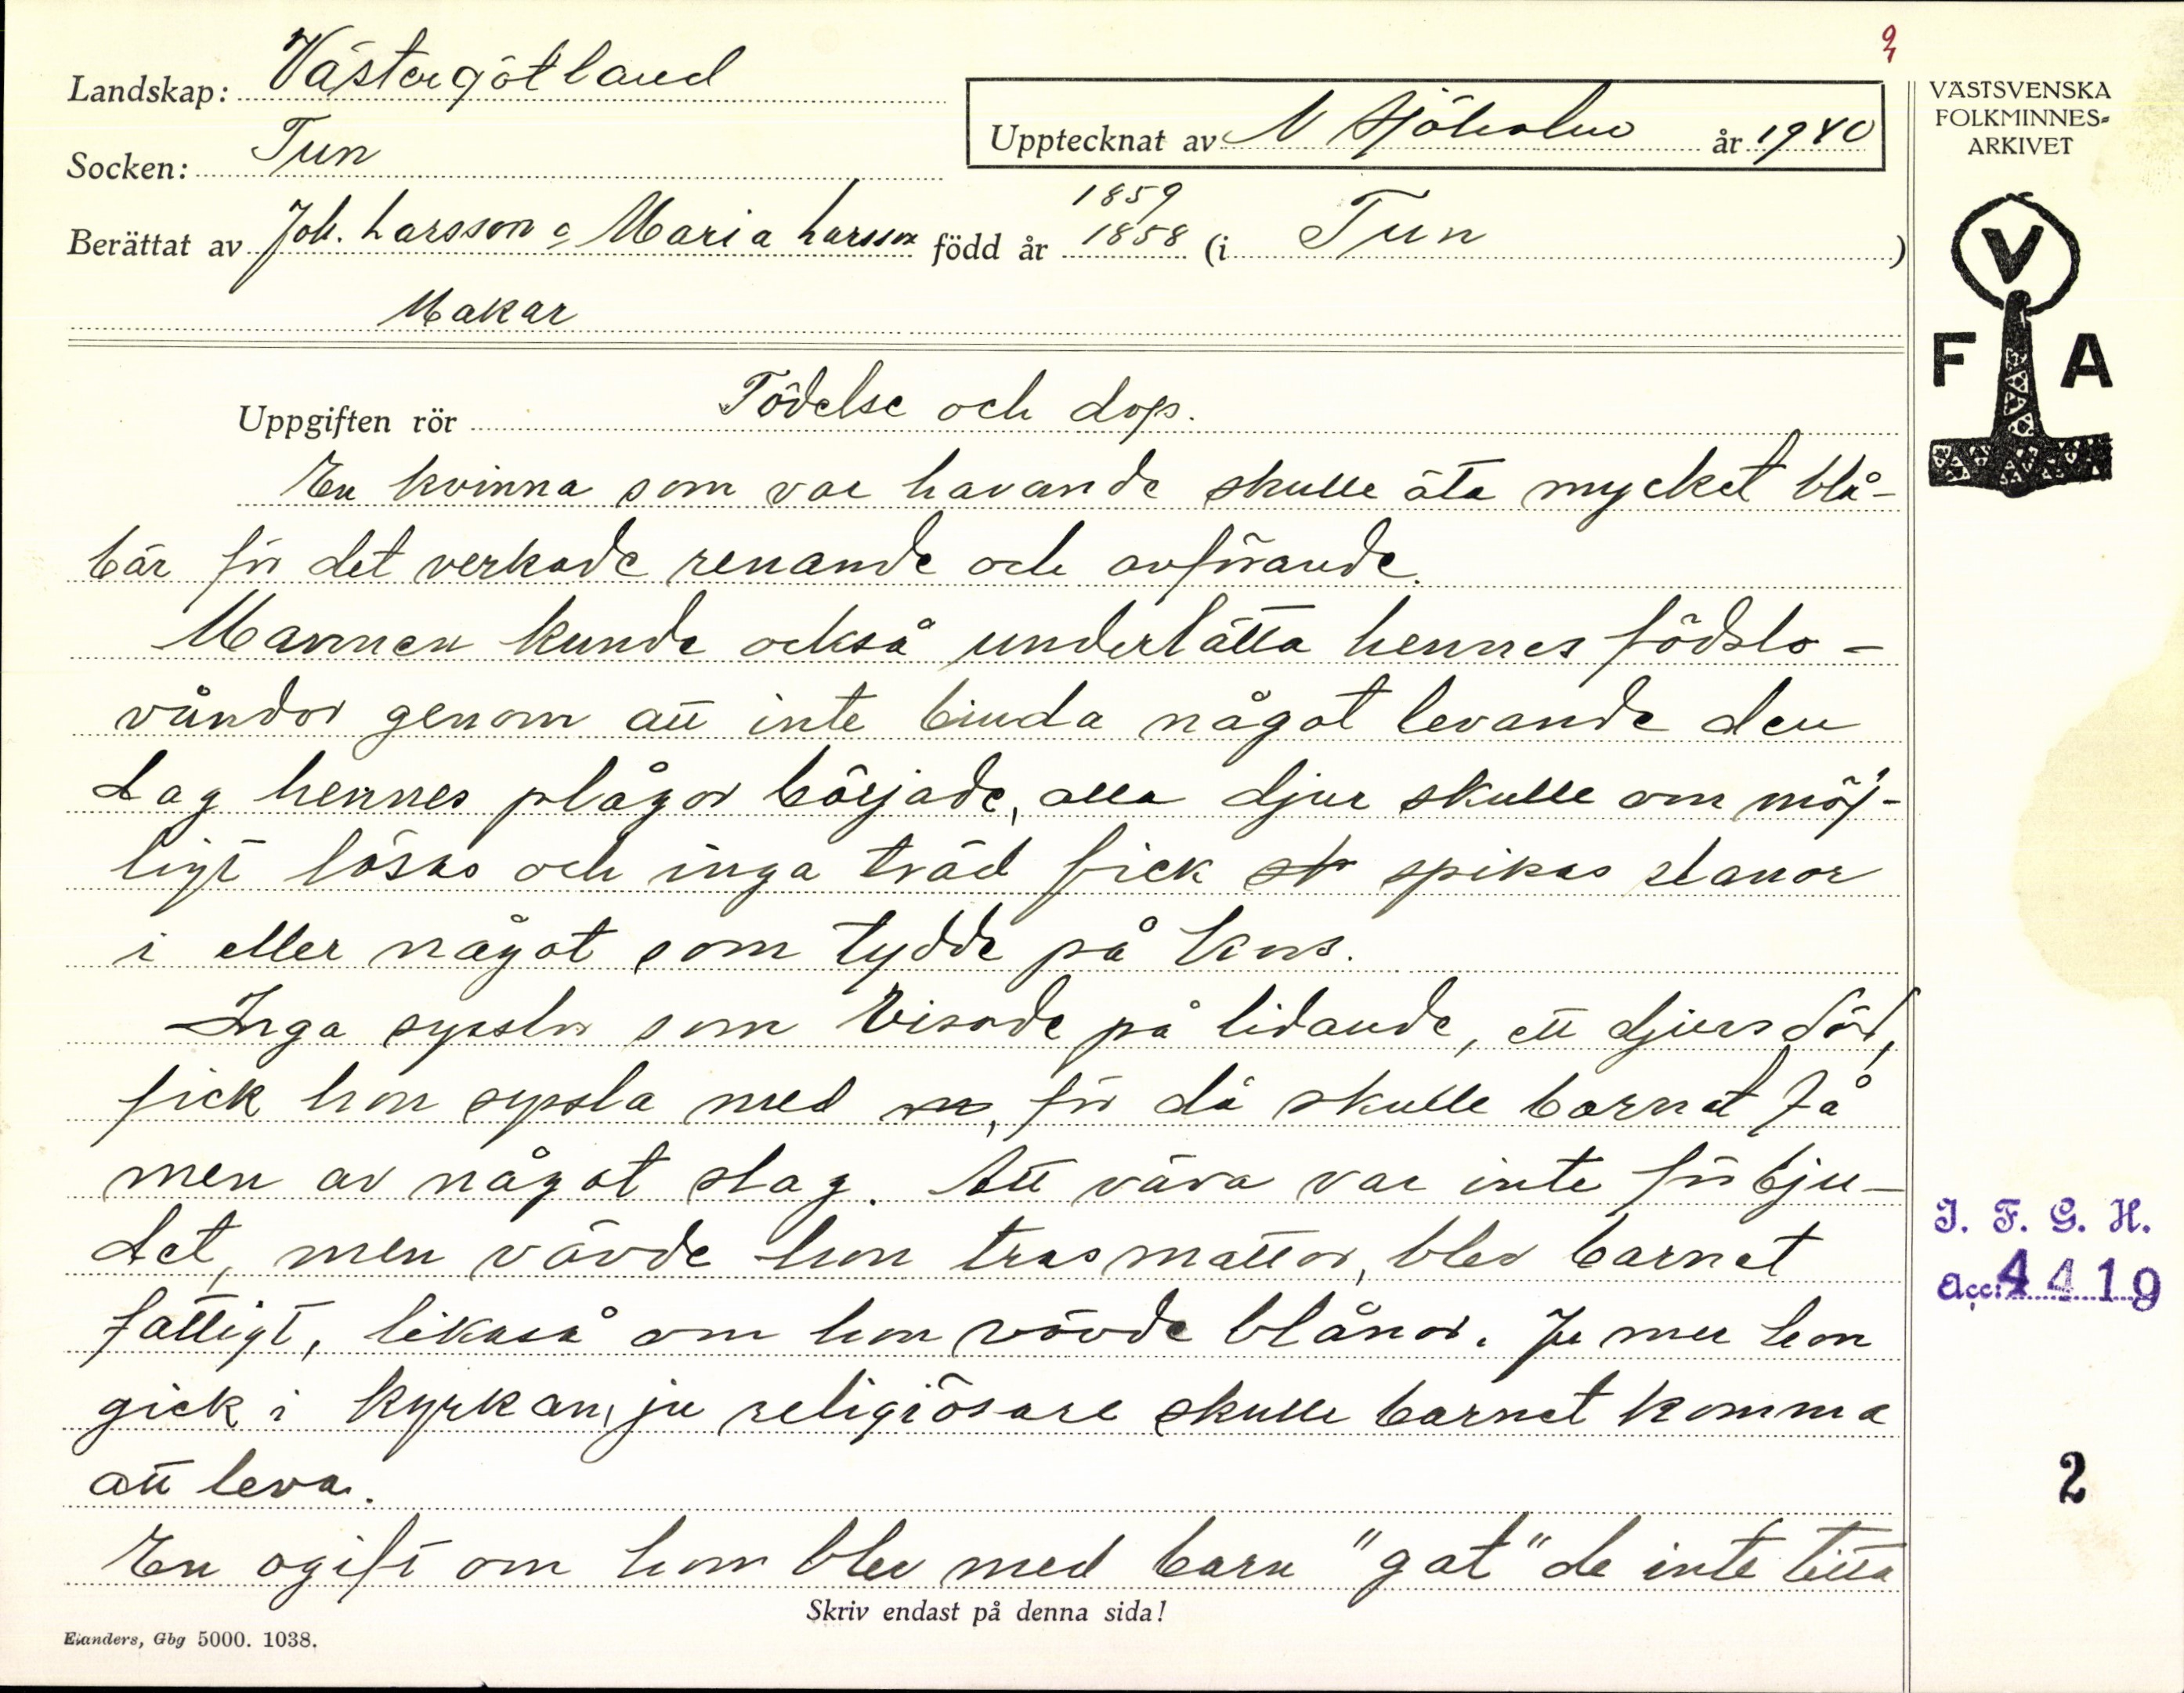 Landskap: Västergötland
Socken: Tun
Upptecknat av N Sjöholm år 1940
Berättat av Joh. Larsson o Maria Larsson född år 1859 1858 (i Tun )
Makar
Uppgiften rör Födelse och dop.
En kvinna som var havande skulle äta mycket blå-
bär för det verkade renande och avförande.
Mannen kunde också underlätta hennes födslo-
våndor genom att inte binda något levande den
dag hennes plågor började, alla djur skulle om möj-
ligt lösas och inga träd fick spikas stänger
i eller något som tydde på kors.
Inga sysslor som visade på lidande, ett djurs död,
fick hon syssla med, för då skulle barnet få
men av något slag. Att väva var inte förbju-
det, men vävde hon trasmattor, blev barnet
fattigt, likaså om hon vävde blånor. Ju mer hon
gick i kyrkan, ju religiösare skulle barnet komma
att leva.
En ogift om hon blev med barn "gat" de inte titta
Skriv endast på denna sida!
Elanders, Gbg 5000. 1038.
VÄSTSVENSKA
FOLKMINNES-
ARKIVET
V
F A
I. F. G. H.
Acc: 4419
2